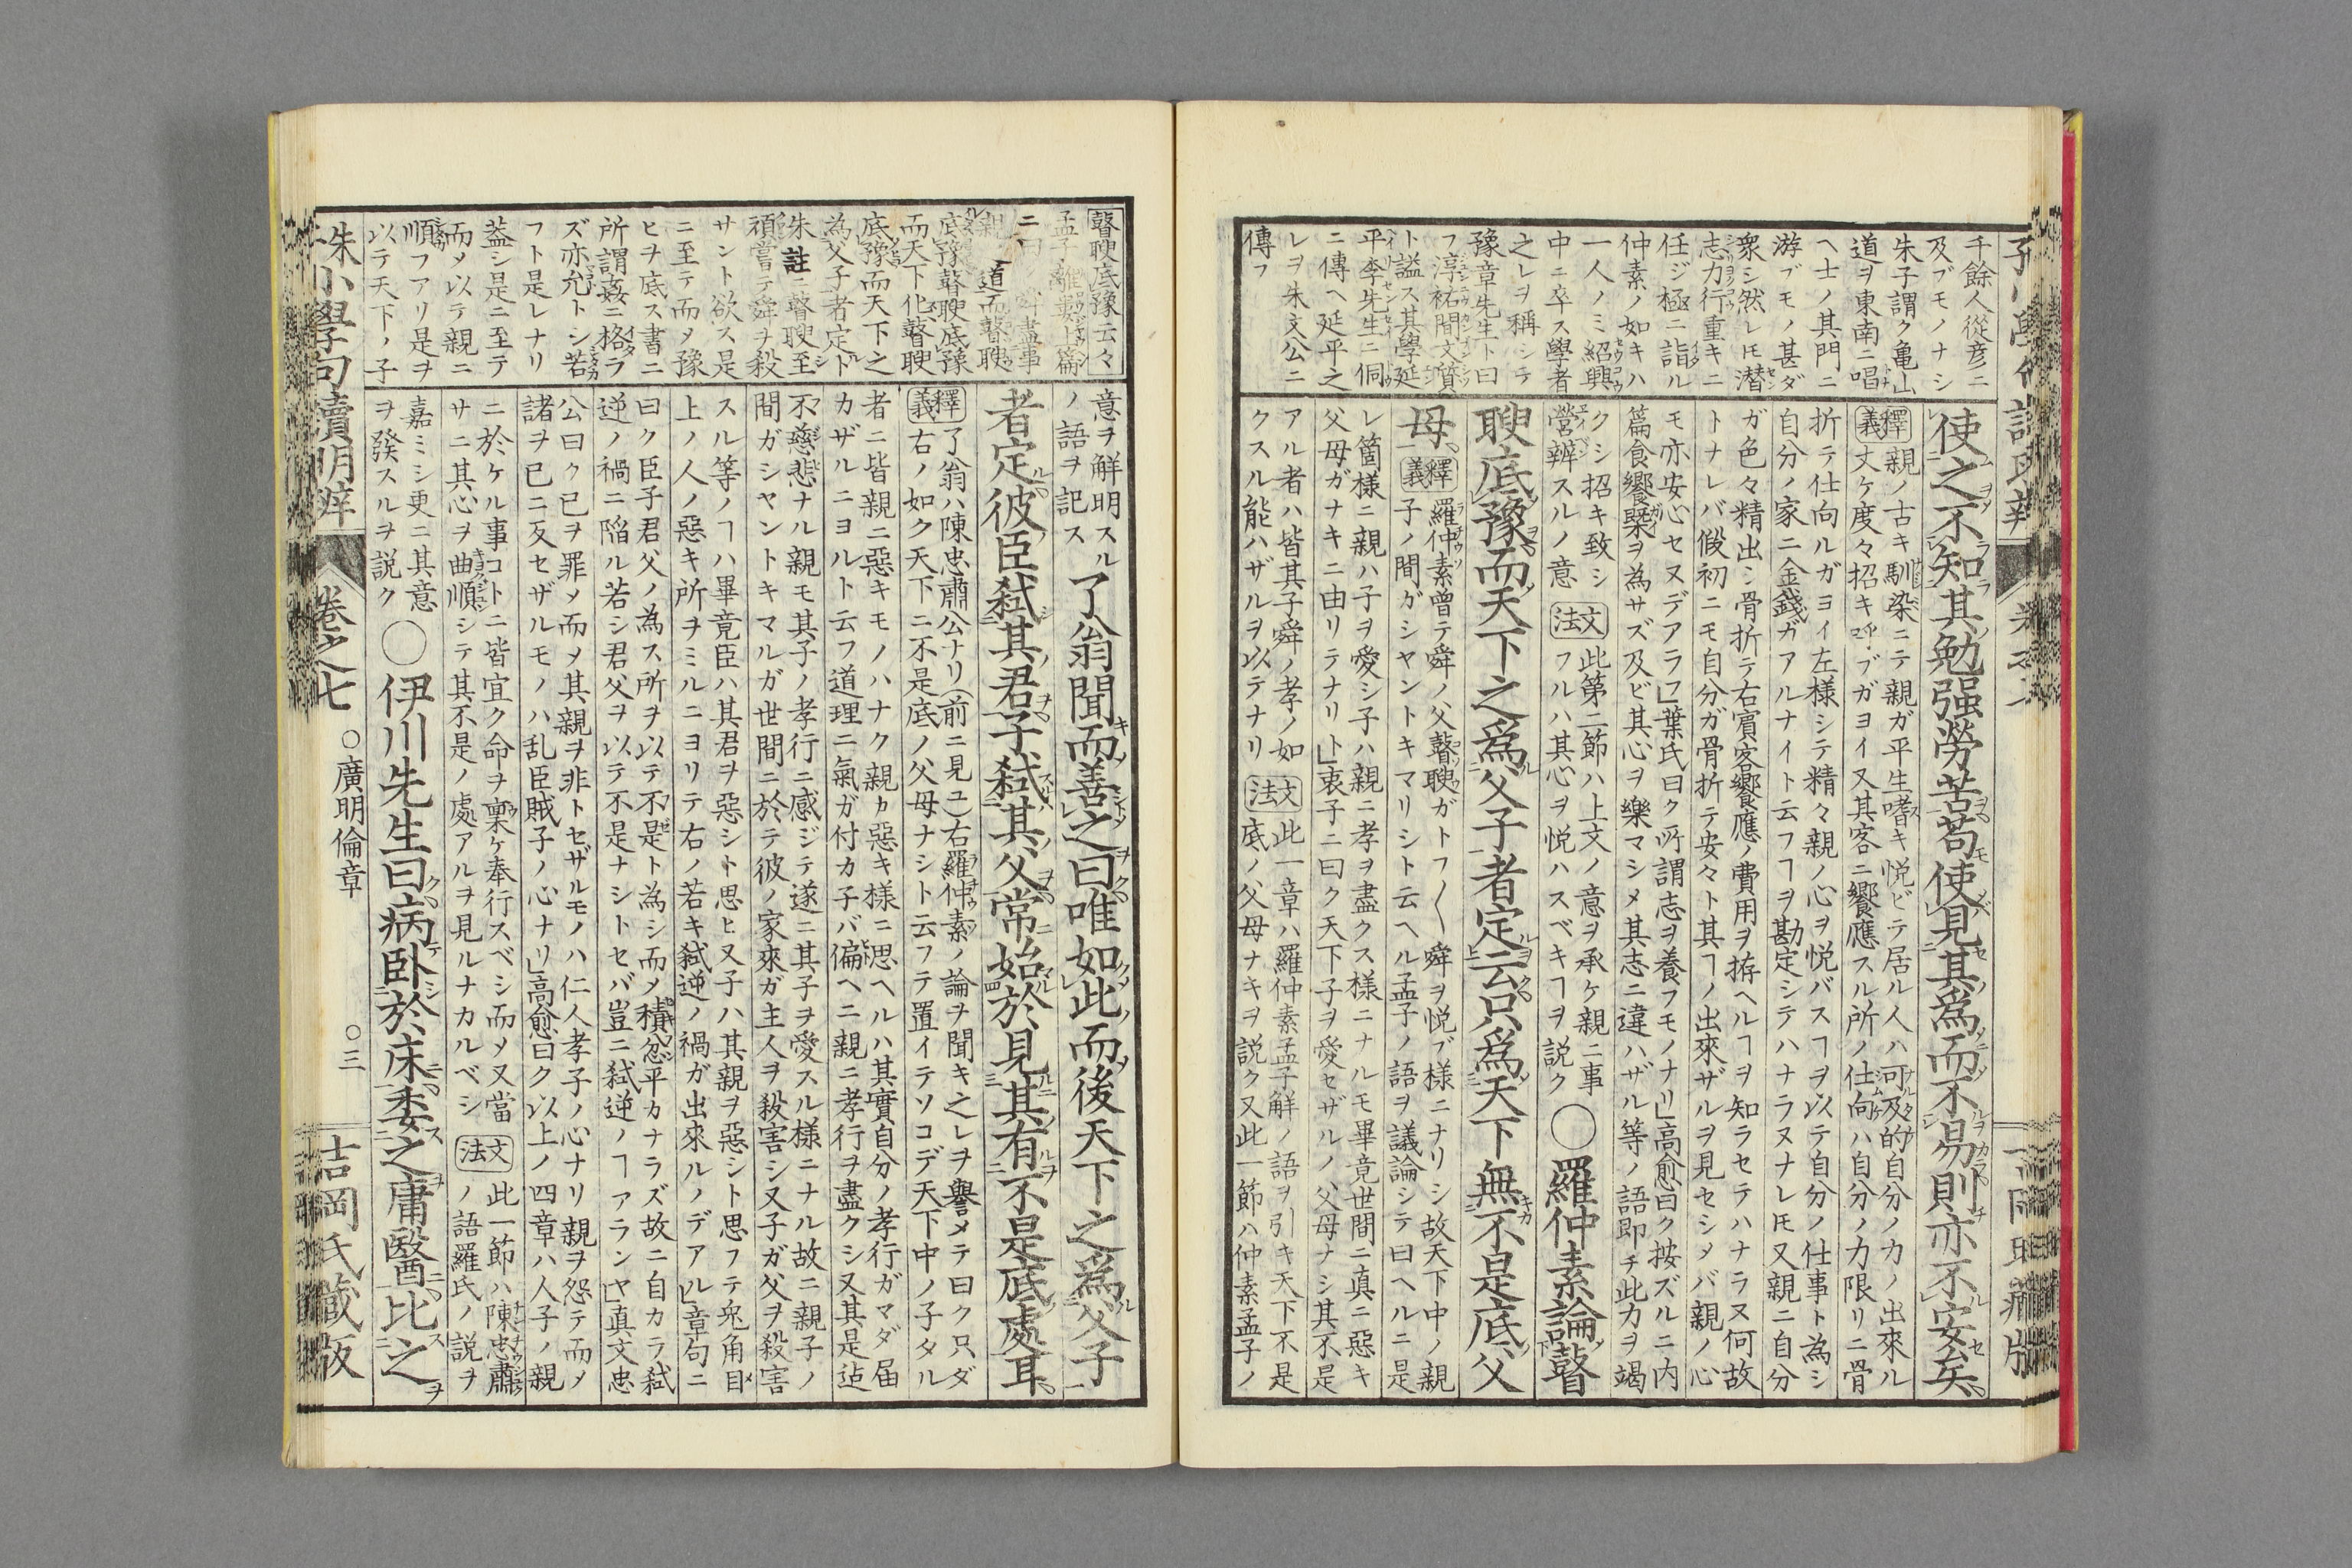 千餘人從彦ニ
及ブモノナシ
朱子謂ク亀山
道ヲ東南ニ唱
ヘ士ノ其門ニ
游ブモノ甚ダ
衆シ然レ𪜈潜
志力行重キニ
任ジ極ニ詣ル
仲素ノ如キハ
一人ノミ紹興
中ニ卒ス學者
之レヲ稱シテ
豫章先生ト曰
フ淳祐間文質
ト謚ス其學延
平李先生ニ侗
ニ傳ヘ延平之
レヲ朱文公ニ
傳フ
使之不知其勉强勞苦苟使見其爲而不易則亦不安矣
釋義
親ノ古キ馴染ニテ親ガ平生嗜キ悦ビテ居ル人ハ可及的自分ノカノ出來ル
丈ケ度々招キ呼ブガヨイ又其客ニ饗應スル所ノ仕向ハ自分ノ力限リニ骨
折テ仕向ルガヨイ左様シテ精々親ノ心ヲ悦バスヿヲ以テ自分ノ仕事ト為シ
自分ノ家ニ金錢ガアルナイト云フヿヲ勘定シテハナラヌナレ𪜈又親ニ自分
ガ色々精出シ骨折テ右賓客饗應ノ費用ヲ拵ヘルヿヲ知ラセテハナラヌ何故
トナレバ假初ニモ自分ガ骨折テ安々ト其ヿノ出來ザルヲ見セシメバ親ノ心
モ亦安心セヌデアラフ」葉氏曰ク所謂志ヲ養フモノナリ」高愈曰ク按ズルニ内
篇食饗槩ヲ為サズ及ビ其心ヲ樂マシメ其志ニ違ハザル等ノ語即チ此力ヲ竭
クシ招キ致シ
營辨スルノ意
文法
此第二節ハ上文ノ意ヲ承ケ親ニ事
フルハ其心ヲ悦ハスベキヿヲ説ク
〇羅仲素論瞽
瞍底豫而天下之爲父子者定云只爲天下無不是底父
母
釋義
羅仲素曽テ舜ノ父瞽瞍ガトフ〱舜ヲ悦ブ様ニナリシ故天下中ノ親
子ノ間ガシヤントキマリシト云ヘル孟子ノ語ヲ議論シテ曰ヘルニ是
レ箇様ニ親ハ子ヲ愛シ子ハ親ニ孝ヲ盡クス様ニナルモ畢竟世間ニ真ニ惡キ
父母ガナキニ由リテナリト」衷子ニ曰ク天下子ヲ愛セザルノ父母ナシ其不是
アル者ハ皆其子舜ノ孝ノ如
クスル能ハザルヲ以テナリ
文法
此一章ハ羅仲素孟子解ノ語ヲ引キ天下不是
底ノ父母ナキヲ説ク又此一節ハ仲素孟子ノ
瞽瞍底豫云々
孟子離婁上篇
ニ曰
道而瞽瞍
底豫瞽瞍底豫
而天下化瞽瞍
底豫而天下之
為父子者定ト
朱註ニ瞽瞍至
頑嘗テ舜ヲ殺
サント欲ス是
ニ至テ而メ豫
ヒヲ底ス書ニ
所謂姦ニ格ラ
ズ亦允トシ若
フト是レナリ
葢シ是ニ至テ
而メ以テ親ニ
順フアリ是ヲ
以テ天下ノ子
意ヲ解明スル
ノ語ヲ記ス
了翁聞而善之曰唯如此而後天下之爲父子
者定彼臣弑其君子弑其父常始於見其有不是底處耳
釋義
了翁ハ陳忠肅公ナリ(前ニ見ユ)右羅仲素ノ論ヲ聞キ之レヲ譽メテ曰ク只ダ
右ノ如ク天下ニ不是底ノ父母ナシト云フテ置イテソコデ天下中ノ子タル
者ニ皆親ニ惡キモノハナク親カ惡キ様ニ思ヘルハ其實自分ノ孝行ガマダ届
カザルニヨルト云フ道理ニ氣ガ付カ子バ偏ヘニ親ニ孝行ヲ盡クシ又其是迠
不慈悲ナル親モ其子ノ孝行ニ感ジテ遂ニ其子ヲ愛スル様ニナル故ニ親子ノ
間ガシヤントキマルガ世間ニ於テ彼ノ家來ガ主人ヲ殺害シ又子ガ父ヲ殺害
スル等ノヿハ畢竟臣ハ其君ヲ惡シト思ヒ又子ハ其親ヲ惡シト思フテ兎角目
上ノ人ノ惡キ所ヲミルニヨリテ右ノ若キ弑逆ノ禍ガ出來ルノデアル」章句ニ
曰ク臣子君父ノ為ス所ヲ以テ不是ト為シ而メ積忿平カナラズ故ニ自カラ弑
逆ノ禍ニ陷ル若シ君父ヲ以テ不是ナシトセバ豈ニ弑逆ノヿアランヤ」真文忠
公曰ク已ヲ罪メ而メ其親ヲ非トセザルモノハ仁人孝子ノ心ナリ親ヲ怨テ而メ
諸ヲ已ニ反セザルモノハ乱臣賊子ノ心ナリ」高愈曰ク以上ノ四章ハ人子ノ親
ニ於ケル事コトニ皆宜ク命ヲ禀ケ奉行スベシ而メ又當
サニ其心ヲ曲順シテ其不是ノ處アルヲ見ルナカルベシ
文法
此一節ハ陳忠肅
ノ語羅氏ノ説ヲ
嘉ミシ更ニ其意
ヲ發スルヲ説ク
〇伊川先生曰病卧於床委之庸醫比之
朱小學句讀明辨
卷之七
〇廣明倫章
〇三
吉岡氏藏版